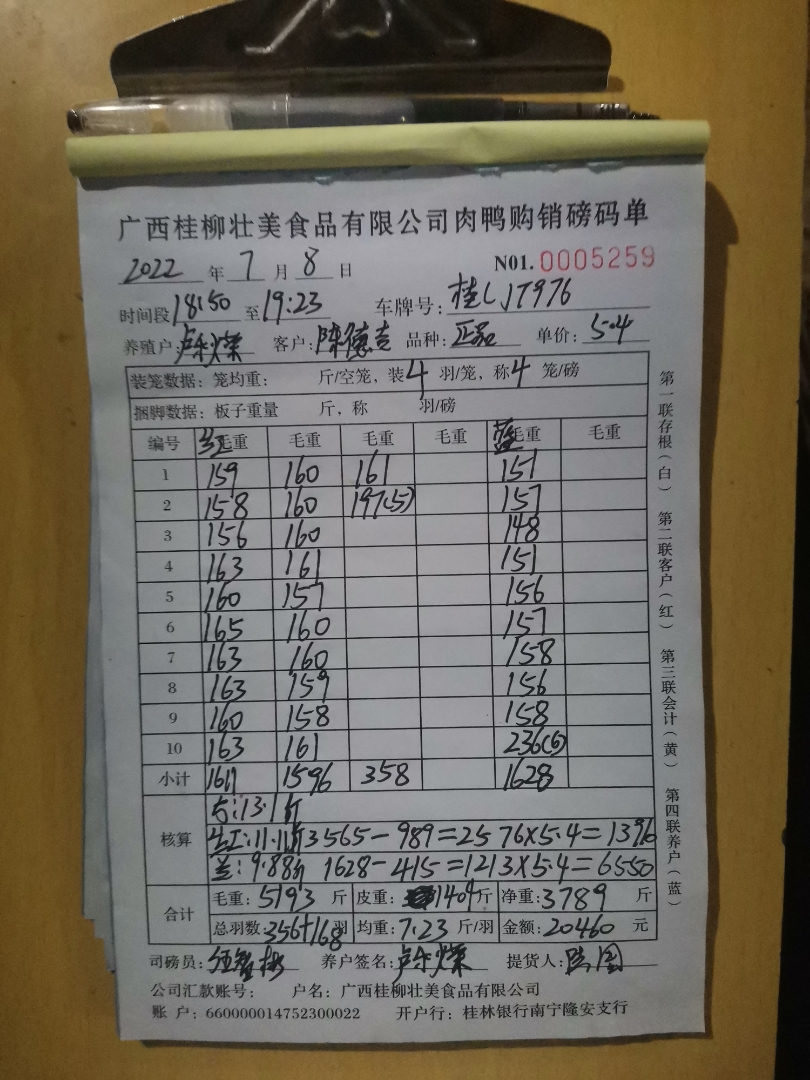 广西桂柳壮美食品有限公司肉鸭购销磅码单
2022 年 7 月 8 日 N01. 0005259
时间段 18:50 至 19:23 车牌号: 桂LJT976
养殖户: 客户: 陈德志 品种: 正品 单价: 5.4
装笼数据: 笼均重: 斤/空笼, 装 4 羽/笼, 称 4 笼/磅
捆脚数据: 板子重量 斤, 称 羽/磅
编号 红毛重 毛重 毛重 毛重 蓝毛重 毛重
1 159 160 161 151
2 158 160 197(5) 157
3 156 160 148
4 163 161 151
5 160 157 156
6 165 160 157
7 163 160 158
8 163 159 156
9 160 158 158
10 163 161 236(6)
小计 1611 1596 358 1628
:13.1斤
核算 红:11.11斤 3565-989=2576×5.4=13910
兰:9.88斤 1628-415=1213×5.4=6550
合计 毛重: 5193 斤 皮重: 1404 斤 净重: 3789 斤
总羽数: 356+168 羽 均重: 7.23 斤/羽 金额: 20460 元
司磅员: 养户签名: 提货人:
公司汇款账号: 户名: 广西桂柳壮美食品有限公司
账 户: 660000014752300022 开户行: 桂林银行南宁隆安支行
第一联存根(白) 第二联客户(红) 第三联会计(黄) 第四联养户(蓝)